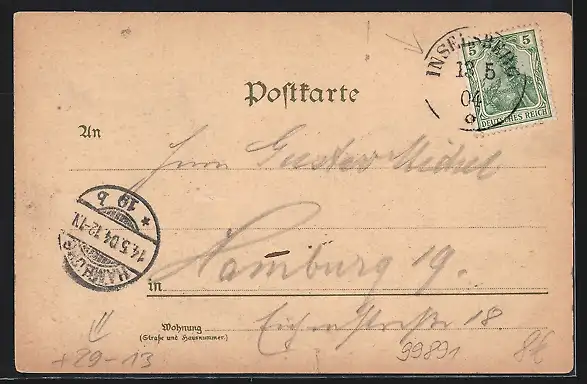 INSELSBERG
13 5
04
5 5
DEUTSCHES REICH
Postkarte
An
Herrn Gustav Michel
* 10 b
14.5.04.12-1N.
HAMBURG
in Hamburg 19.
Wohnung
(Straße und Hausnummer.)
Eichenstraße 18
+29-13
99891
8€